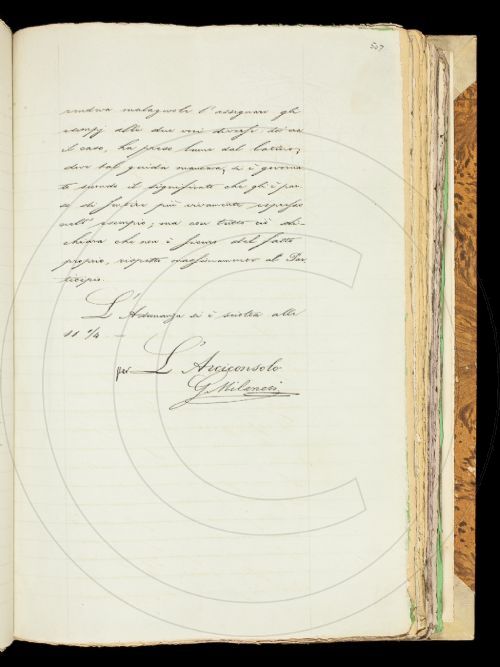 507
rendeva malagevole l'assegnare gli
esempj alle due voci diverse:
il caso, ha preso lume dal latino,
dove tal guida mancava, si è governa-
to secondo il significato che gli è par-
so di sentire più vivamente espresso
nell'esempio; ma con tutto ciò di-
chiara che non è sicuro del fatto
proprio, rispetto massimamente al Par-
ticipio.
L'Adunanza si è sciolta alle
11 3/4 —
per L'Arciconsolo
G. Milanesi